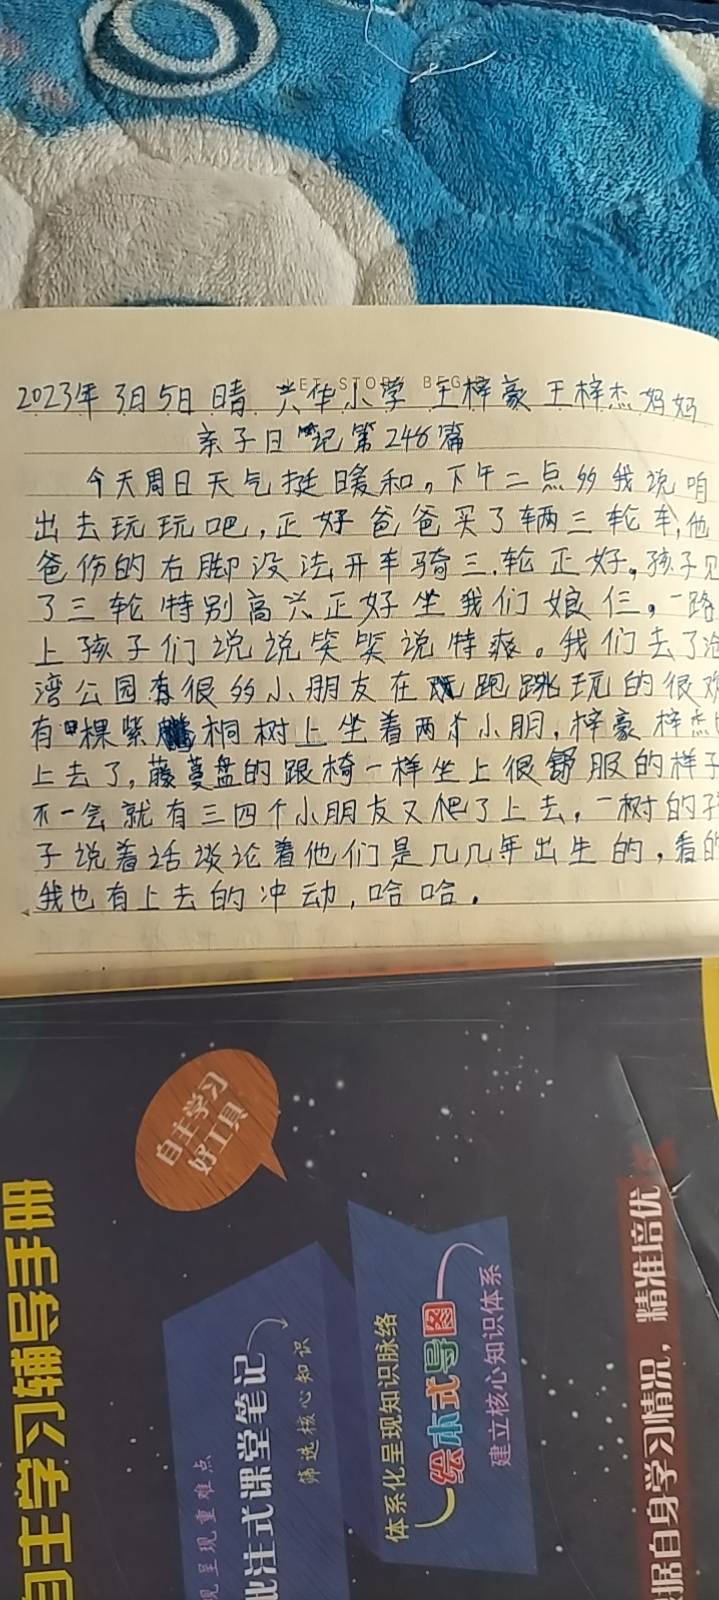 2023年3月5日 晴 兴华小学 王梓豪 王梓杰妈妈
亲子日记第248篇
今天周日天气挺暖和。下午二点多我说咱
出去玩玩吧,正好爸爸买了辆三轮车,他
爸伤的右脚没法开车骑三轮正好。孩子见
了三轮特别高兴正好坐我们娘仨。一路
上孩子们说说笑笑说特爽。我们去了
湾公园有很多小朋友在跑跳玩的很欢
有棵紫桐树上坐着两个小朋,梓豪梓杰
上去了,藤蔓盘的跟椅一样坐上很舒服的样子
不一会就有三四个小朋友又爬了上去,一树的孩
子说着话谈论着他们是几几年出生的,看的
我也有上去的冲动,哈哈。
自主学习
好工具
自主学习辅导手册
呈现重难点
批注式课堂笔记
筛选核心知识
体系化呈现知识脉络
绘本式导图
建立核心知识体系
据自身学习情况,精准培优